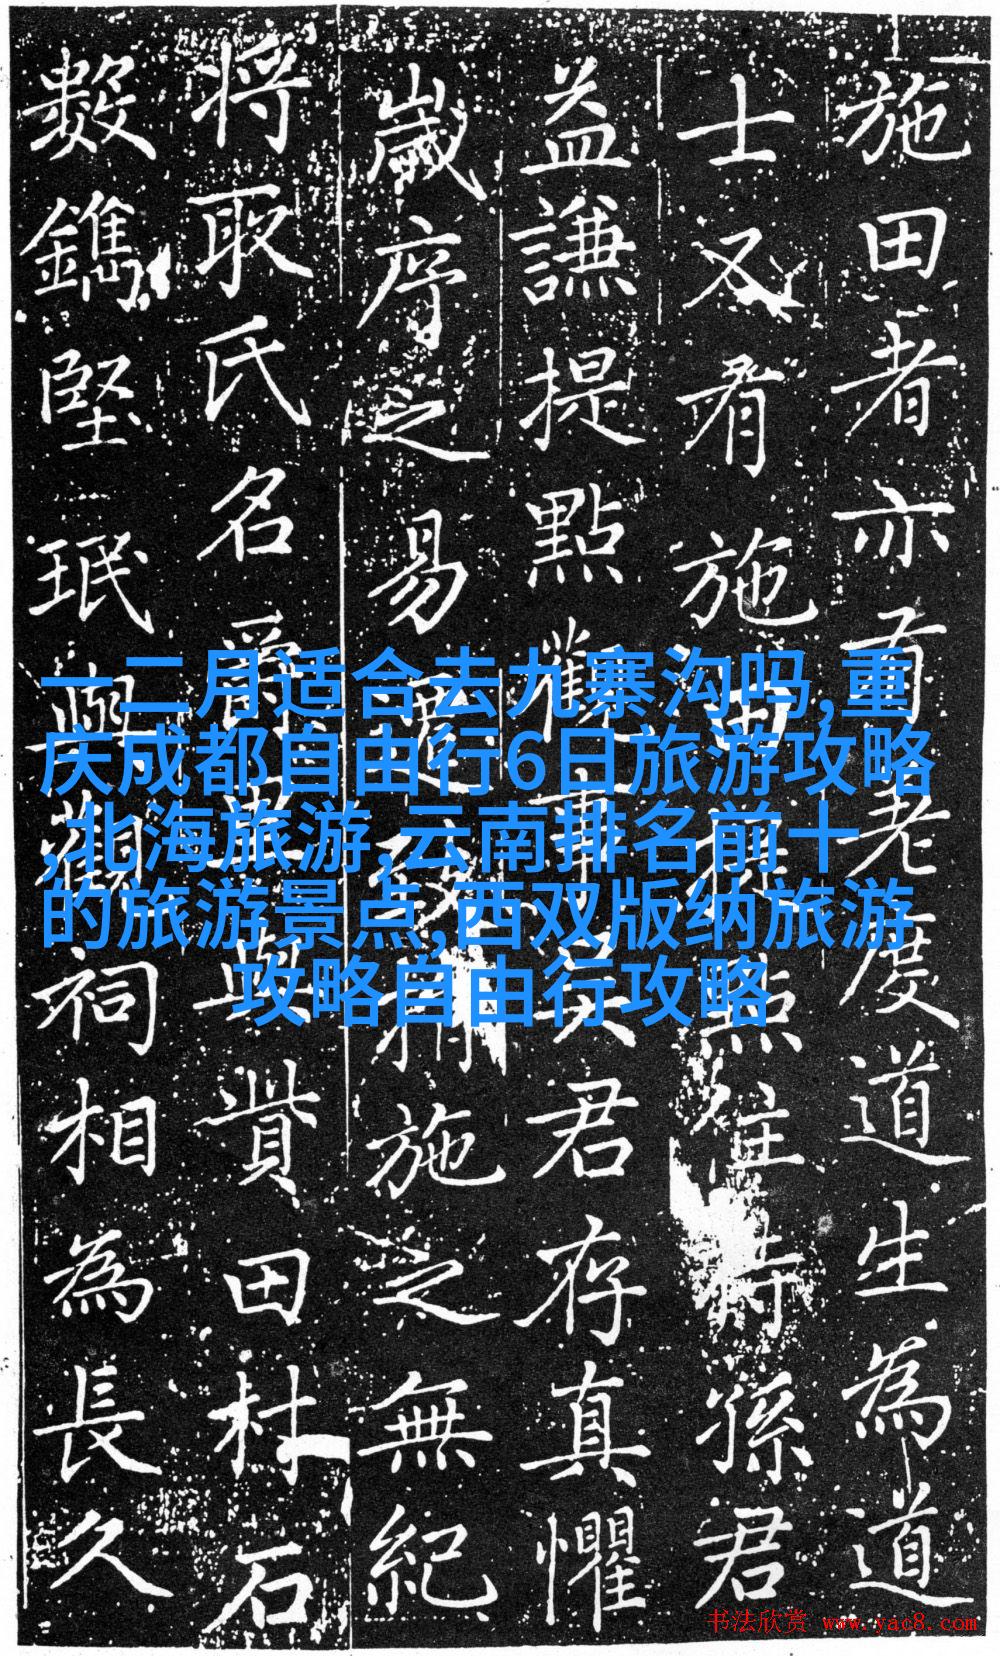 施田者亦有老度道生為道
士又有施田照住持孫君
益謙提點觀事吳君存真懼
歲序之易施之無紀
將取氏名爵與貲田石
数鐫堅珉與觀祠相為長久
一二月适合去九寨沟吗,重
庆成都自由行6日旅游攻略
,北海旅游,云南排名前十
的旅游景点,西双版纳旅游
攻略自由行攻略
书法欣赏 www.yac8.com